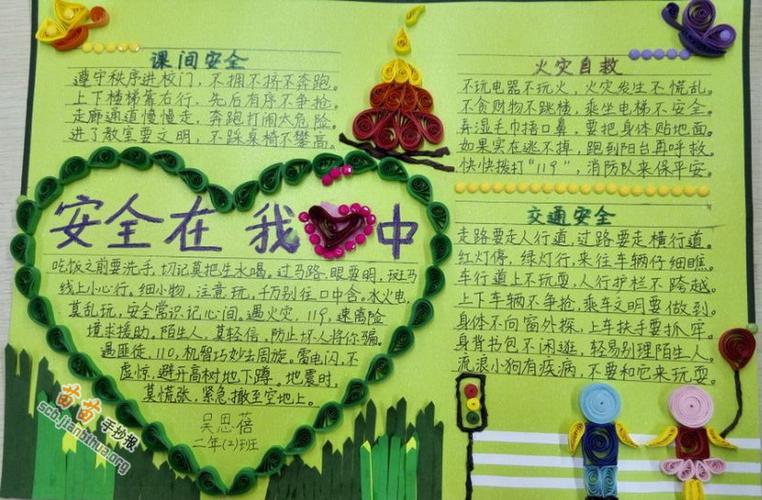 课间安全
遵守秩序进校门，不拥不挤不奔跑。
上下楼梯靠右行，先后有序不争抢。
走廊通道慢慢走，奔跑打闹太危险。
进了教室要文明，不踩桌椅不攀高。
火灾自救
不玩电器不玩火，火灾发生不慌乱。
不贪财物不跳楼，乘坐电梯不安全。
弄湿毛巾捂口鼻，要把身体贴地面。
如果实在逃不掉，跑到阳台再呼救。
快快拨打"119"，消防队来保平安。
安全在我中
吃饭之前要洗手，切记莫把生水喝，过马路，眼要明，斑马
线上小心行。细小物，注意玩，千万别往口中含。水火电，
莫乱玩，安全常识记心间。遇火灾，119，速离险
境求援助。陌生人，莫轻信，防止坏人将你骗。
遇匪徒，110，机智巧妙去周旋。雷电闪，不
虚惊，避开高树地下蹲。地震时，
莫慌张，紧急撤至空地上。
吴思蓓
二年(2)班
交通安全
走路要走人行道，过路要走横行道。
红灯停，绿灯行，来往车辆仔细瞧。
车行道上不玩耍，人行护栏不跨越。
上下车辆不争抢，乘车文明要做到。
身体不向窗外探，上车扶手要抓牢。
身背书包不闲逛，轻易别理陌生人。
流浪小狗有疾病，不要和它来玩耍。
苗苗手抄报
sch.jianbihua.org